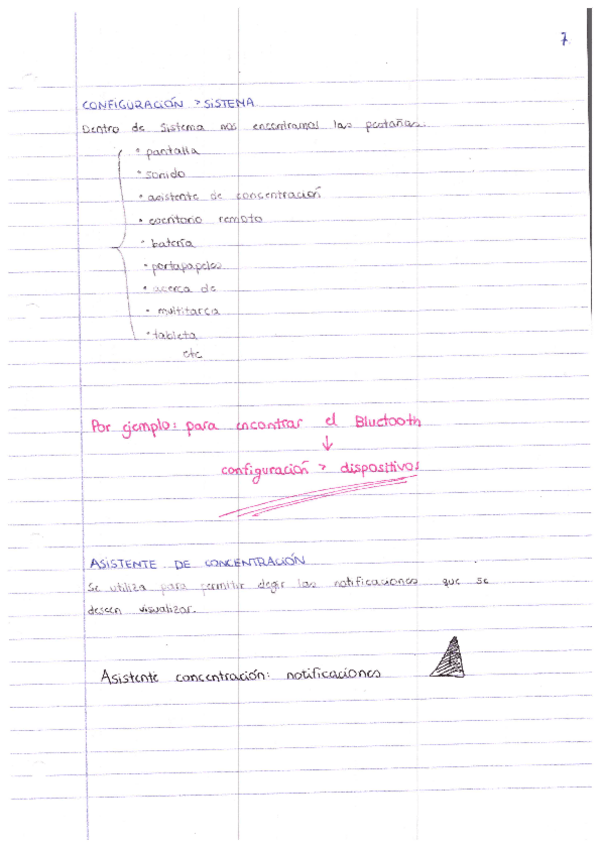 7
CONFIGURACIÓN > SISTEMA
Dentro de Sistema nos encontramos las pestañas:
• pantalla
• sonido
• asistente de concentración
• escritorio remoto
• batería
• portapapeles
• acerca de
• multitarea
• tableta
etc
Por ejemplo: para encontrar el Bluetooth
↓
configuración > dispositivos
ASISTENTE DE CONCENTRACIÓN
Se utiliza para permitir elegir las notificaciones que se
deseen visualizar.
Asistente concentración: notificaciones